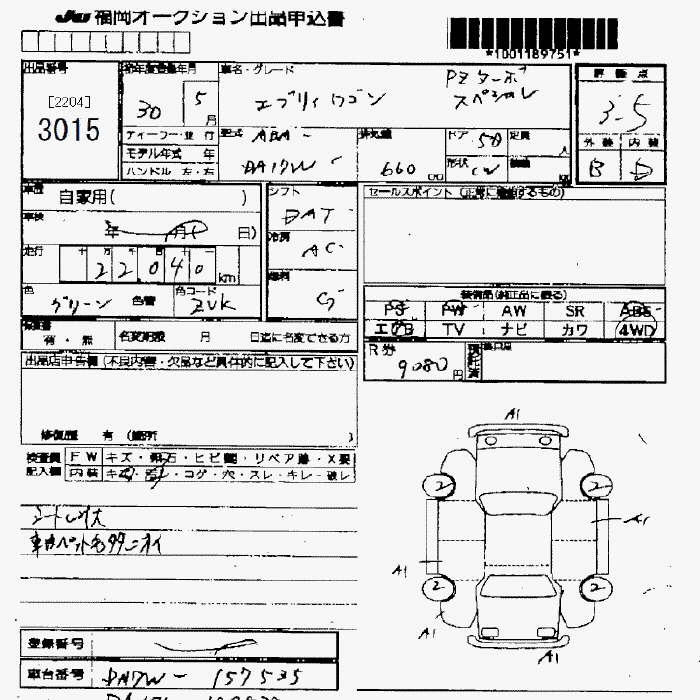 JU 福岡オークション出品申込書
*1001189751*
出品番号
[2204]
3015
初年度登録年月
30 5 月
車名・グレード
エブリィワゴン
PZターボ
スペシャル
評価点
3.5
外装 内装
B D
ディーラー・並行
モデル年式 年
ハンドル 左・右
型式 ABA-
DA17W-
排気量
660 cc
ドア 5D
定員 人
形状 CW
車歴
自家用( )
車検
年 月( 日)
走行
十 万 千 百 十 一
22040 km
色 グリーン 色替
色コード ZVK
シフト
DAT
冷房
AC
燃料
G
セールスポイント(正常に機能するもの)
装備品(純正品に限る)
PS PW AW SR ABS
エアB TV ナビ カワ 4WD
有・無
名変期限 月 日迄に名変できる方
R券
9080 円
出品店申告欄(不良内容・欠品など具体的に記入して下さい)
修復歴 有 (箇所 )
検査員 FW キズ・飛石・ヒビ・リペア跡・X要
記入欄 内装 キズ・・コゲ・穴・スレ・キレ・破レ
車内ペット毛多ニオイ
登録番号
車台番号 DA17W-157535
A1
2 2
A1
A1
2 2
A1
A1